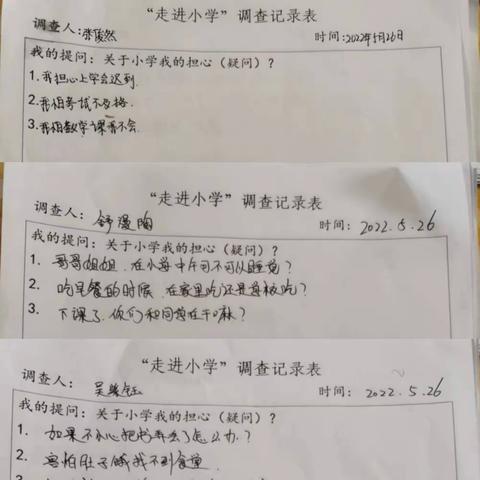 “走进小学”调查记录表
调查人：张陵然 时间：2022年5月26日
我的提问：关于小学我的担心（疑问）？
1.我担心上学会迟到.
2.我怕考试不及格.
3.我怕数学课看不会.
“走进小学”调查记录表
调查人：舒漫陶 时间：2022.5.26
我的提问：关于小学我的担心（疑问）？
1. 哥哥姐姐，在小学中午可不可以睡觉？
2. 吃早餐的时候，在家里吃还是学校吃？
3. 下课了，你们和同学在干嘛？
“走进小学”调查记录表
调查人：吴 时间：2022.5.26
我的提问：关于小学我的担心（疑问）？
1. 如果不小心把书弄丢了怎么办？
2. 害怕肚子饿找不到食堂.